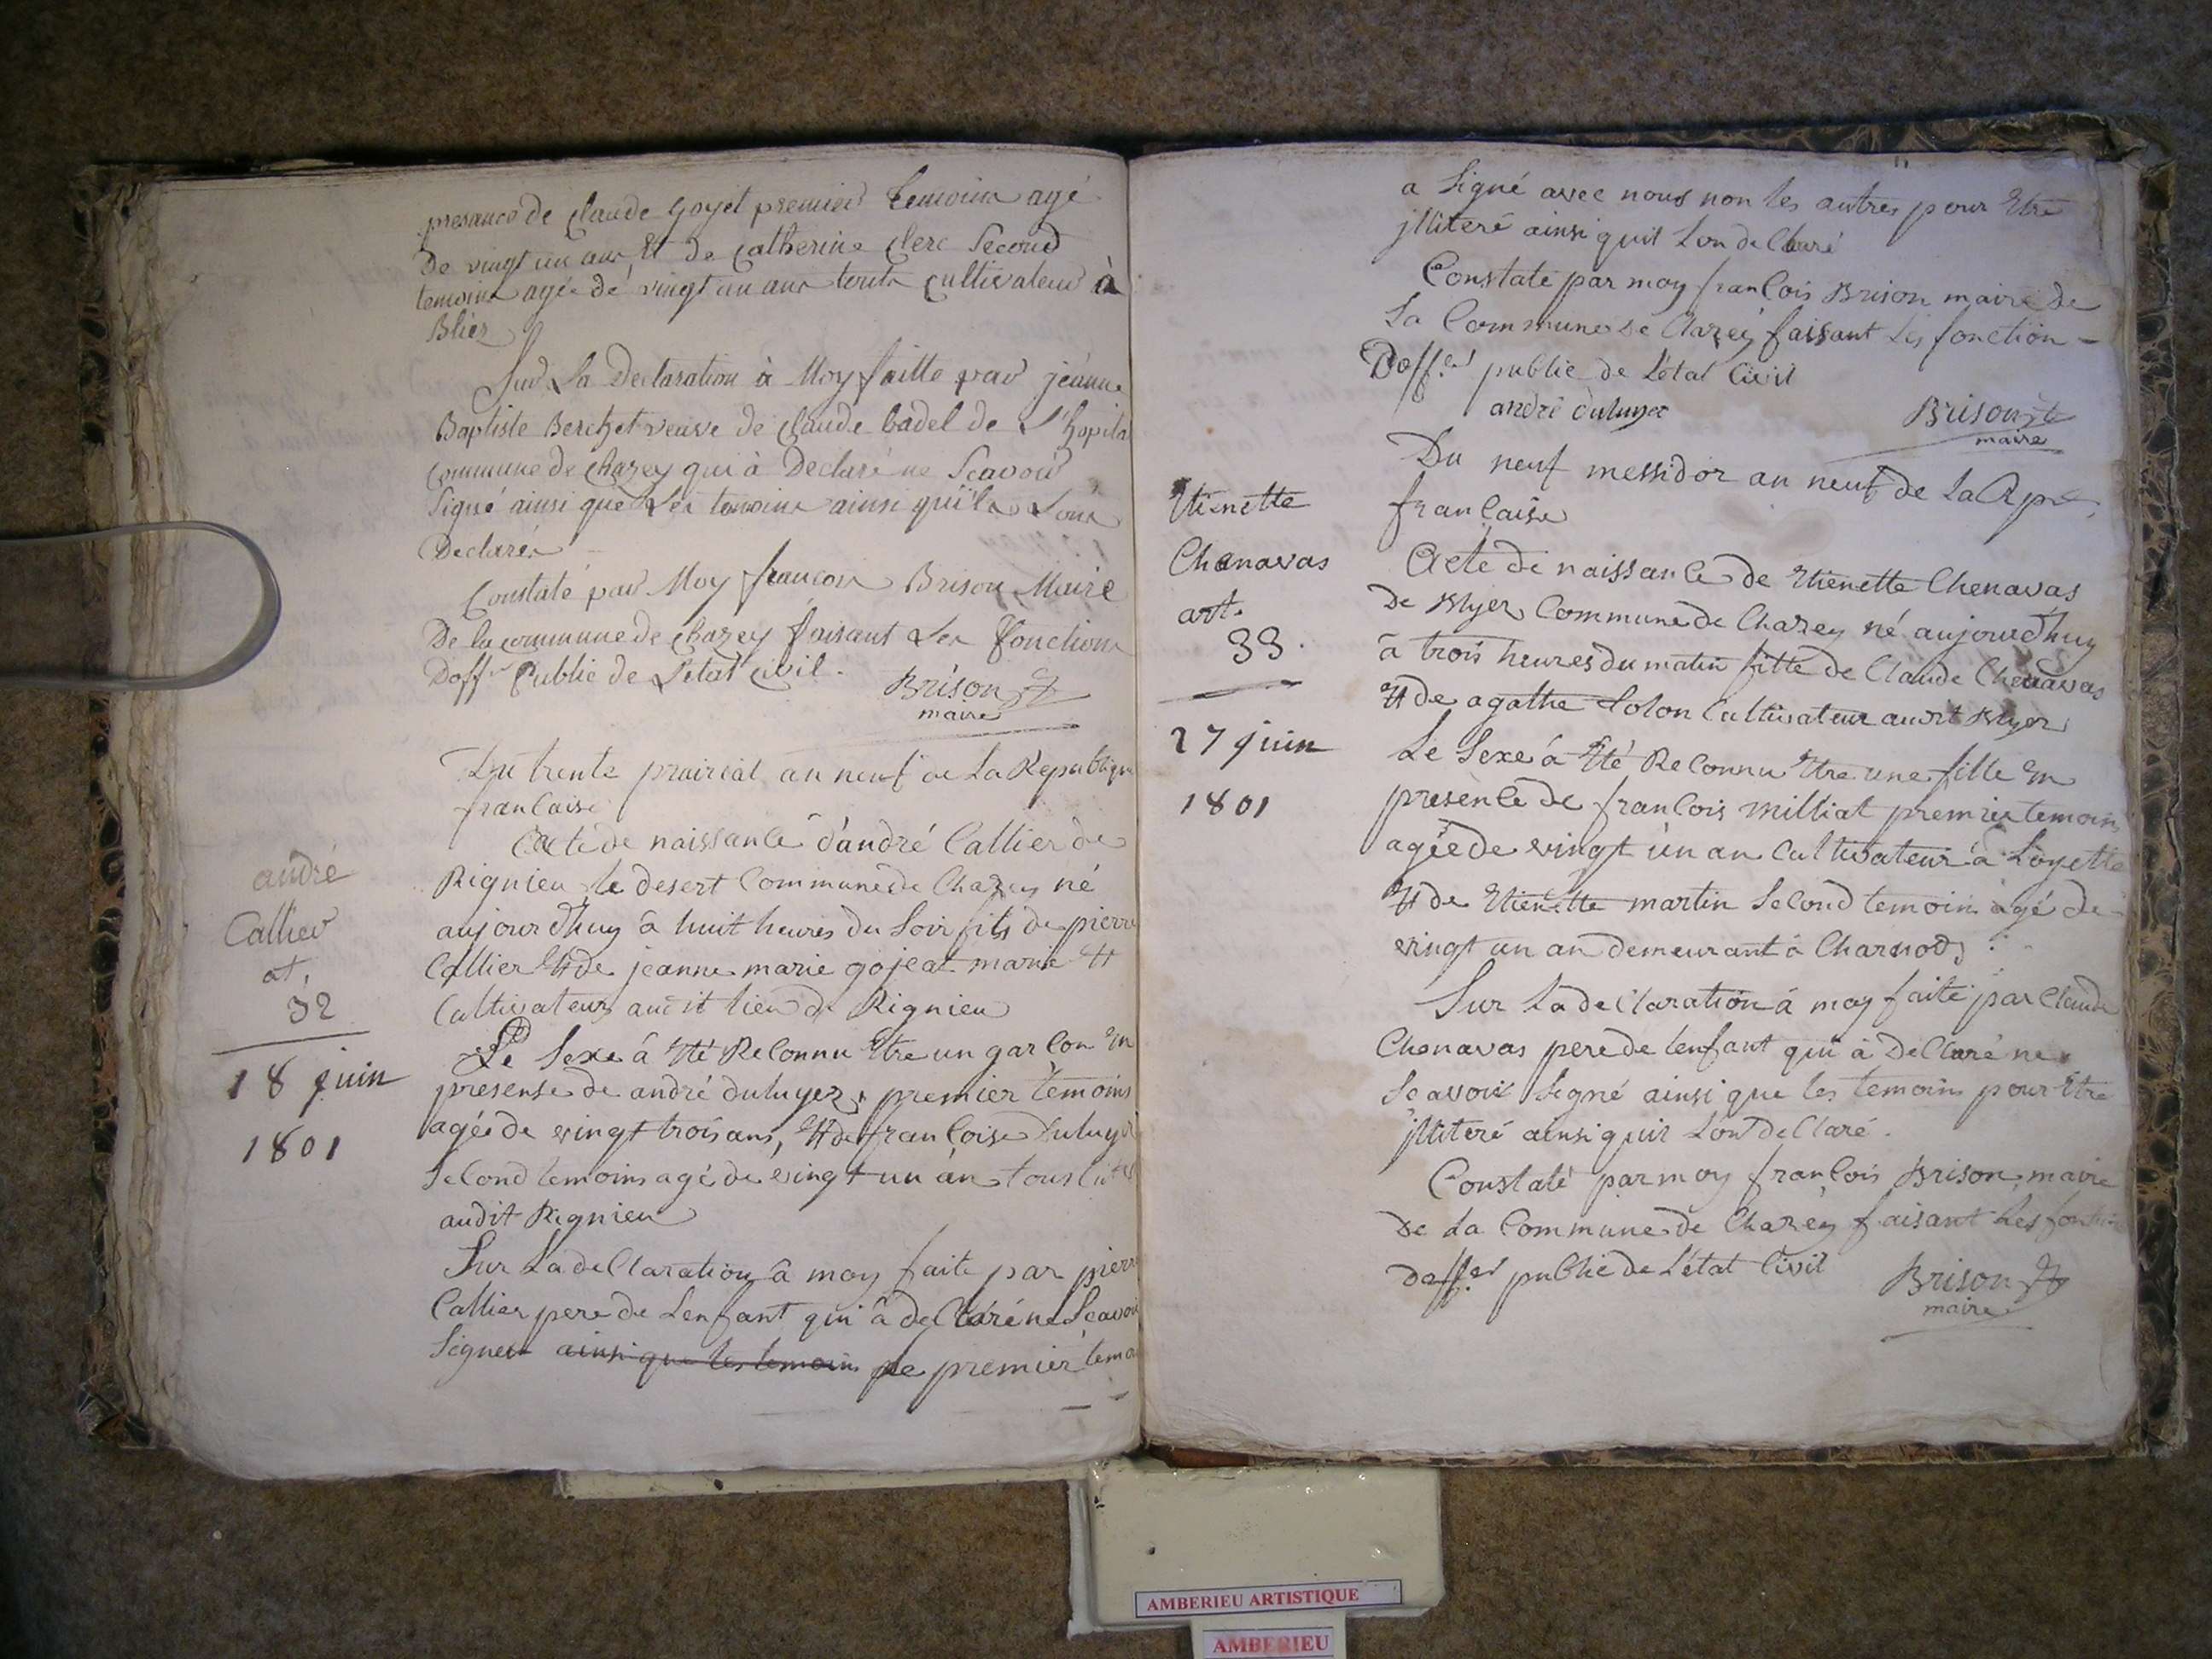 presance de Claude Goyet premier temoin agé
De vingt un ans Et de Catherine Clerc Second
temoin agée de vingt un ans touts cultivateur à
Bliez
Sur La Declaration à Moy faitte par jeanne
Baptiste Berchet veuve de Claude badel de L'hopita
commune de Chazey qui à Declaré ne Scavoir
Signé ainsi que Les temoins ainsi quils Lons
Declarés
Constaté par Moy francois Brison Maire
De la commune de Chazey faisant Les fonctions
Doffer Public de Letat Civil.
Brison
maire
Du trente prairial an neuf de La Republique
francaise
andré
Callier
at.
32
18 juin
1801
Acte de naissance d'andré Callier de
Rignieu le desert Commune de Chazey né
aujourdhuy à huit heures du Soir fils de pierre
Callier Et de jeanne marie gojeat marié Et
Cultivateurs audit lieu de Rignieu
Le Sexe à Eté Reconnu Etre un garcon En
presense de andré duluyer premier temoins
agée de vingt trois ans, Et de francoise Duluy
Second temoins agé de vingt un an tous
audit Rignieu
Sur La declaration à moy faite par pierr
Callier pere de Lenfant qui à declaré ne Scavoi
Signer ainsi que les temoins le premier temo
a Signé avec nous non les autres pour Etre
jlliteré ainsi quil Lon declaré
Constaté par moy francois Brison maire de
La Commune de Chazey faisant les fonction
Doffer public de L'état Civil
andré duluyer
Brison
maire
Du neuf messidor an neuf de La Rpe
francaise
Etienette
Chenavas
art.
33.
27 juin
1801
Acte de naissance de Etienette Chenavas
De Blyer Commune de Chazey né aujourdhuy
à trois heures du matin fille de Claude Chenavas
Et de agathe Colon Cultivateur audit Blyer
Le Sexe à Eté Reconnu Etre une fille En
presence de francois milliat premier temoin
agée de vingt un an Cultivateur à Loyette
Et de Etienette martin Second temoin agé de
vingt un an demeurant à Charnod
Sur La declaration à moy faite par Claude
Chenavas pere de lenfant qui à Declaré ne
Scavoir Signé ainsi que les temoins pour Etre
jlliteré ainsi quil Lont declaré.
Constaté par moy francois Brison maire
De La Commune de Chazey faisant les
Doffer public de L'état Civil
Brison
maire
AMBERIEU ARTISTIQUE
AMBERIEU